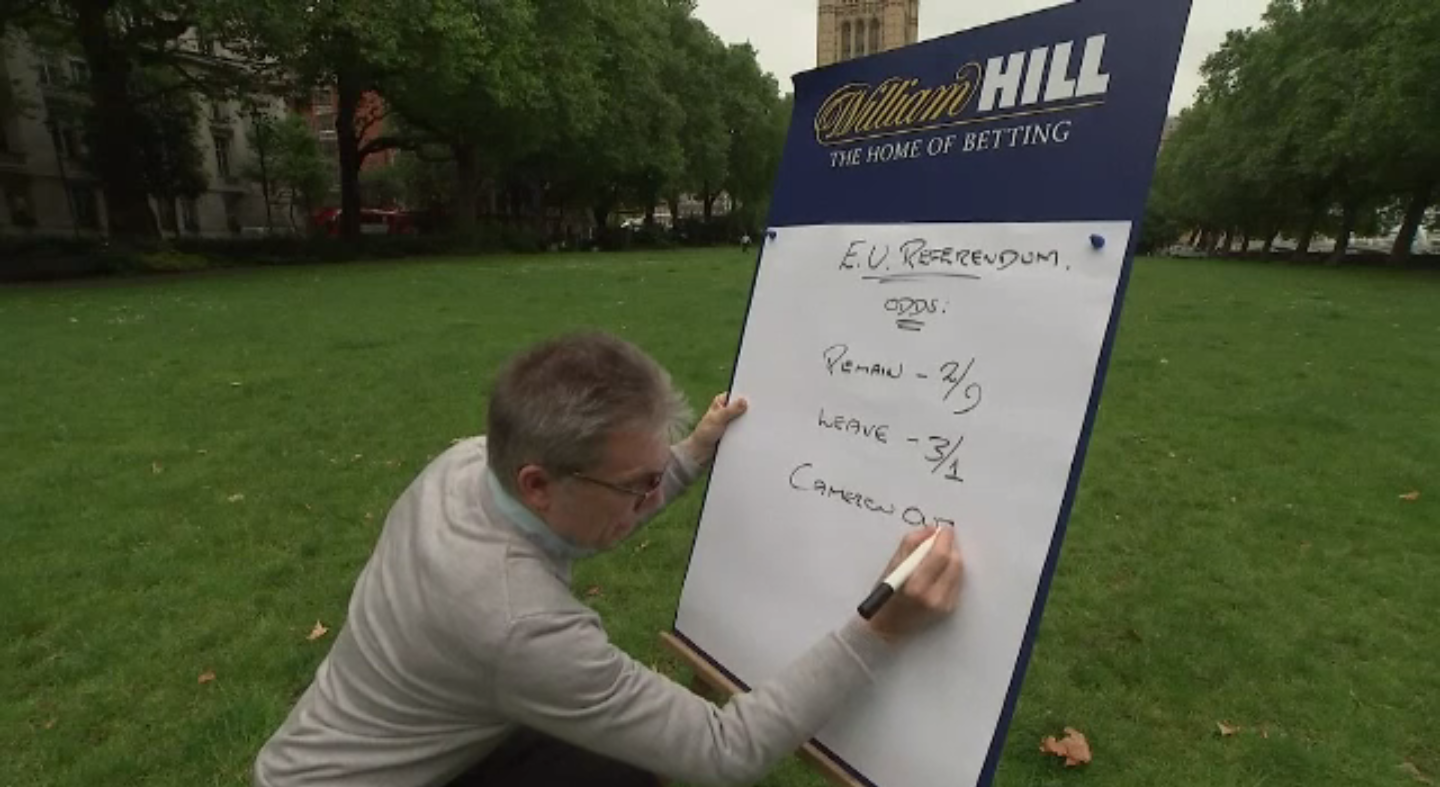 William HILL
THE HOME OF BETTING
E.U. REFERENDUM.
ODDS:
REMAIN - 2/9
LEAVE - 3/1
CAMERON OUT